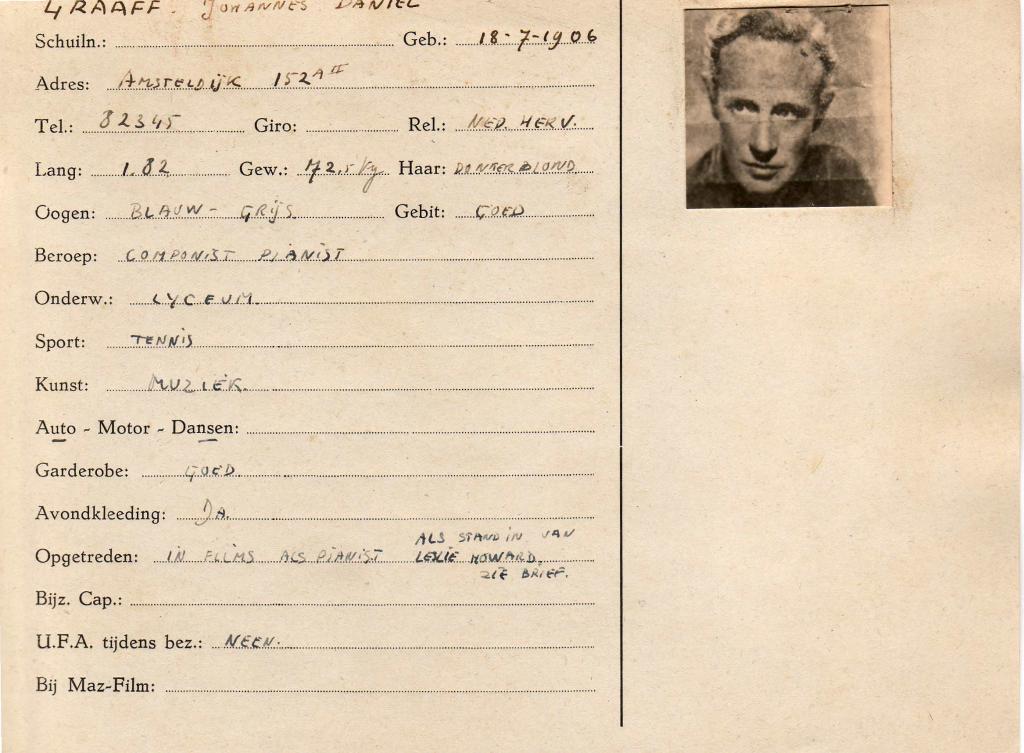 GRAAFF. JOHANNES DANIEL
Schuiln.: Geb.: 18-7-1906
Adres: AMSTELDIJK 152 A II
Tel.: 82345 Giro: Rel.: NED. HERV.
Lang: 1.82 Gew.: 72,5 kg Haar: DONKERBLOND
Oogen: BLAUW - GRIJS Gebit: GOED
Beroep: COMPONIST PIANIST
Onderw.: LYCEUM.
Sport: TENNIS
Kunst: MUZIEK.
Auto - Motor - Dansen:
Garderobe: GOED.
Avondkleeding: JA.
Opgetreden: IN FILMS ALS PIANIST ALS STAND IN VAN
LESLIE HOWARD.
ZIE BRIEF.
Bijz. Cap.:
U.F.A. tijdens bez.: NEEN.
Bij Maz-Film: